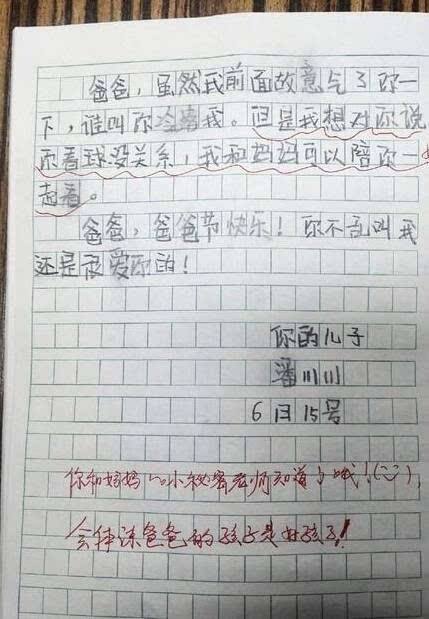 爸爸，虽然我前面故意气了你一
下，谁叫你冷落我。但是我想对你说
你看球没关系，我和妈妈可以陪你一
起看。
爸爸，爸爸节快乐！你不乱叫我
还是很爱你的！
你的儿子
潘川川
6月15号
你和妈妈的小秘密老师知道了哦！(··)
会体谅爸爸的孩子是好孩子！